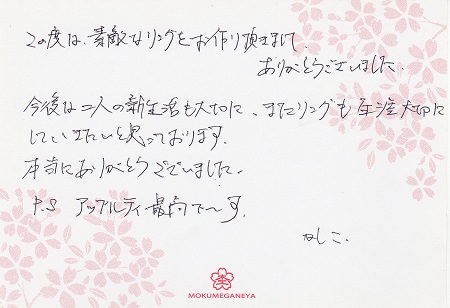 この度は、素敵なリングをお作り頂きまして、
ありがとうございました。
今後は二人の新生活も大切に、またリングも一生涯大切に
していきたいと思っております。
本当にありがとうございました。
P.S アップルティ最高で〜す。
かしこ.
MOKUMEGANEYA